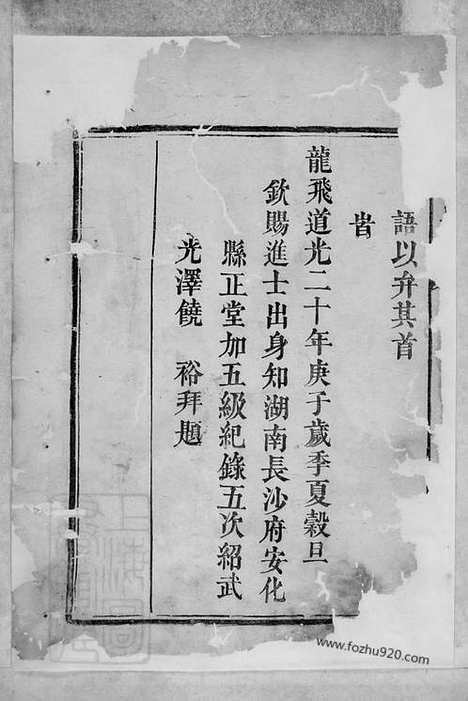 語以弁其首
旹
龍飛道光二十年庚子歲季夏穀旦
欽賜進士出身知湖南長沙府安化
縣正堂加五級紀錄五次紹武
光澤饒 裕拜題
www.fozhu920.com